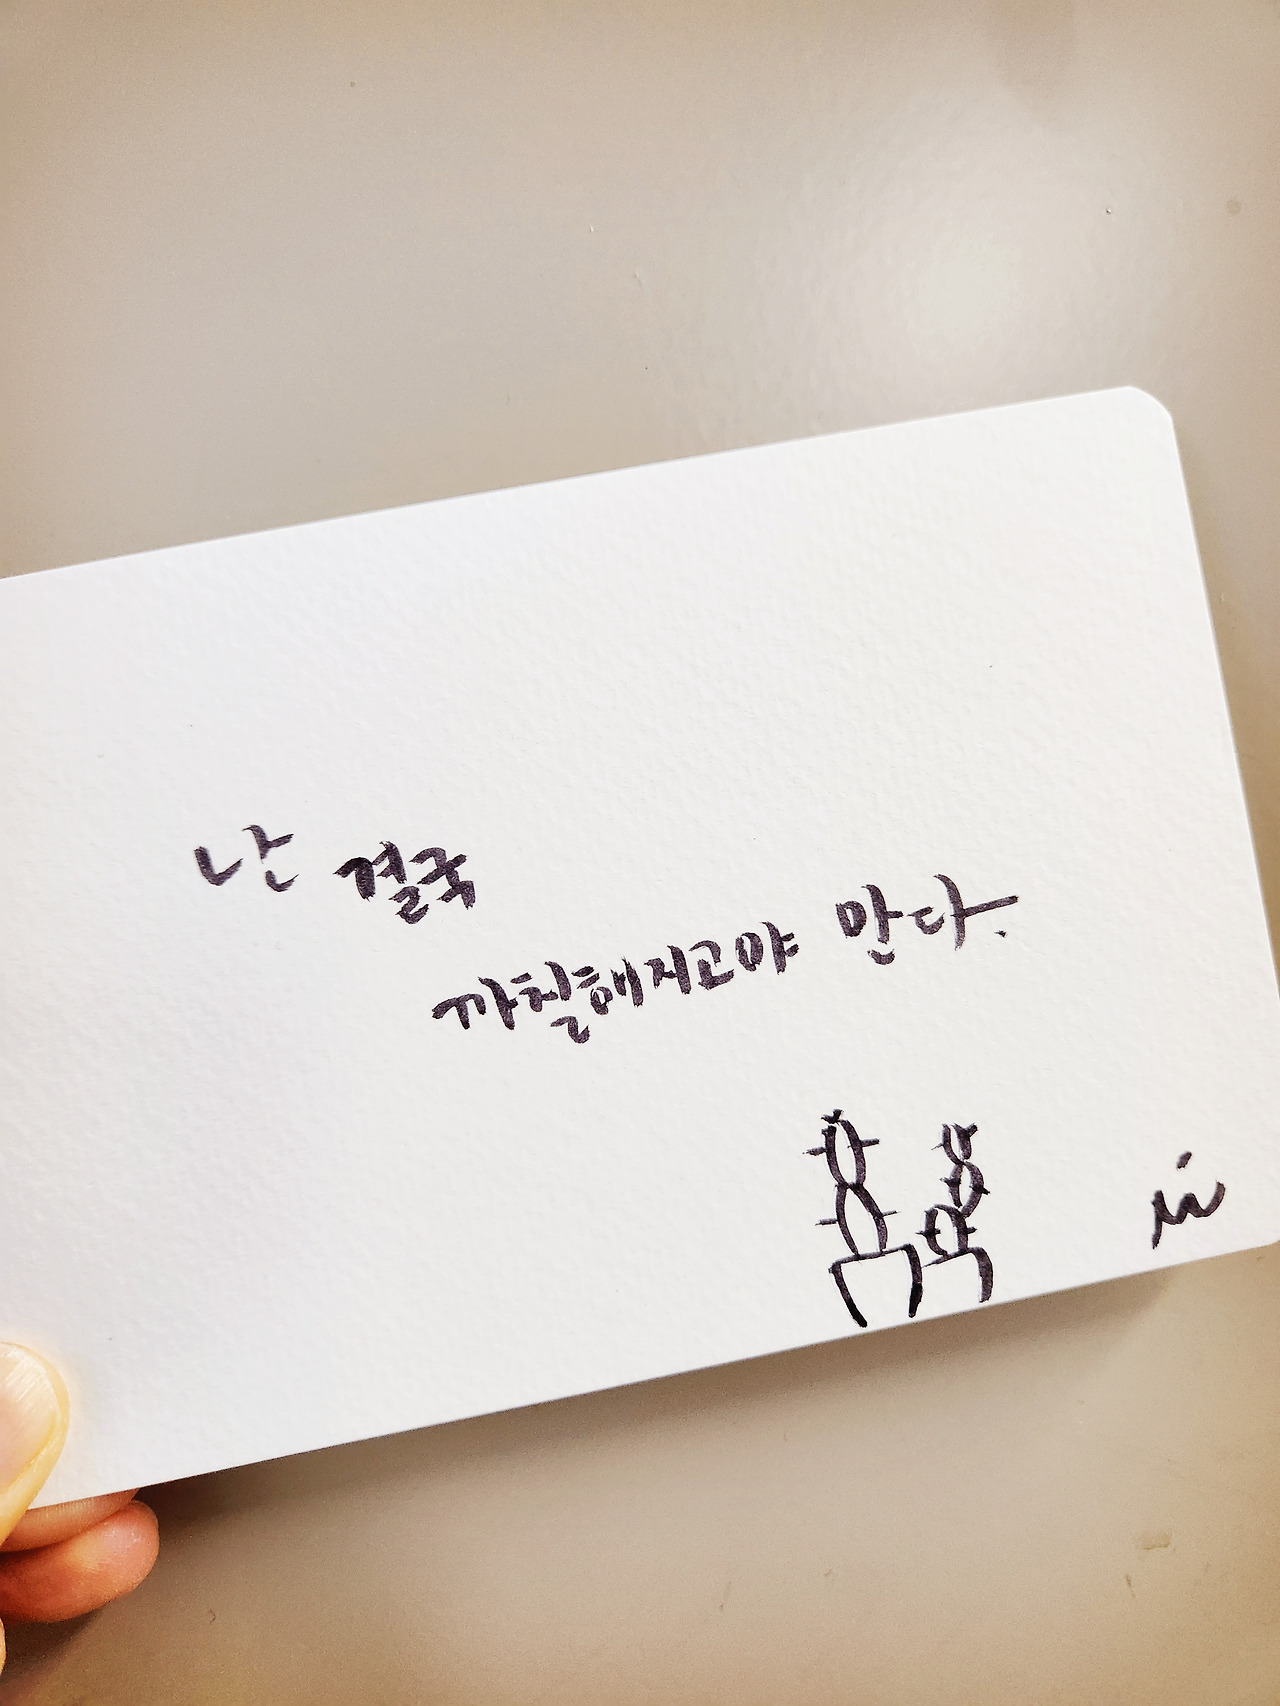 난 결국
까칠해지고야 만다.